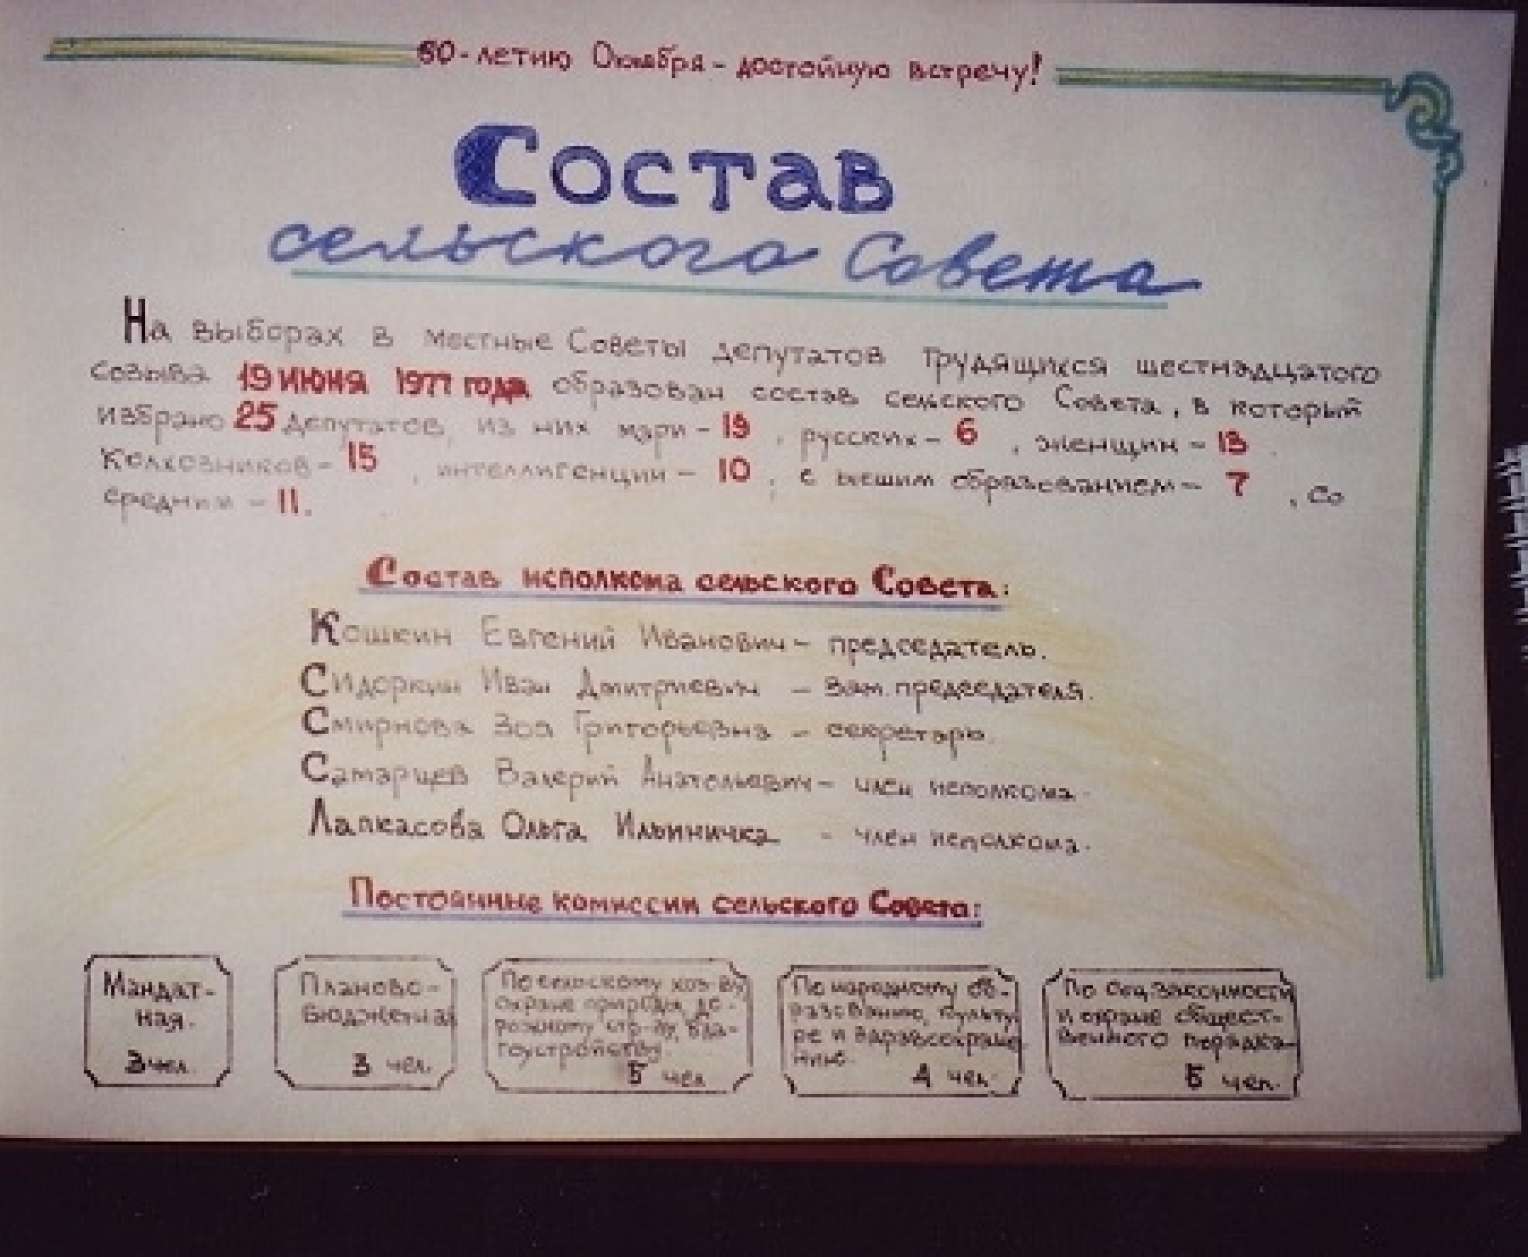 60-летию Октября - достойную встречу!
Состав
сельского Совета
На выборах в местные Советы депутатов трудящихся шестнадцатого
созыва 19 июня 1977 года образован состав сельского Совета, в который
избрано 25 депутатов, из них мари - 19, русских - 6, женщин - 13.
Колхозников - 15, интеллигенции - 10, с высшим образованием - 7, со
средним - 11.
Состав исполкома сельского Совета:
Кошкин Евгений Иванович - председатель.
Сидоркин Иван Дмитриевич - зам. председателя.
Смирнова Зоя Григорьевна - секретарь.
Самарцев Валерий Анатольевич - член исполкома.
Лапкасова Ольга Ильиничка - член исполкома.
Постоянные комиссии сельского Совета:
Мандат-
ная.
3 чел.
Планово-
бюджетная
3 чел.
По сельскому хоз-ву,
охране природы, до-
рожному стр-ву, бла-
гоустройству.
5 чел
По народному об-
разованию, культу-
ре и здравоохране-
нию.
4 чел.
По соц.законности
и охране общест-
венного порядка
5 чел.